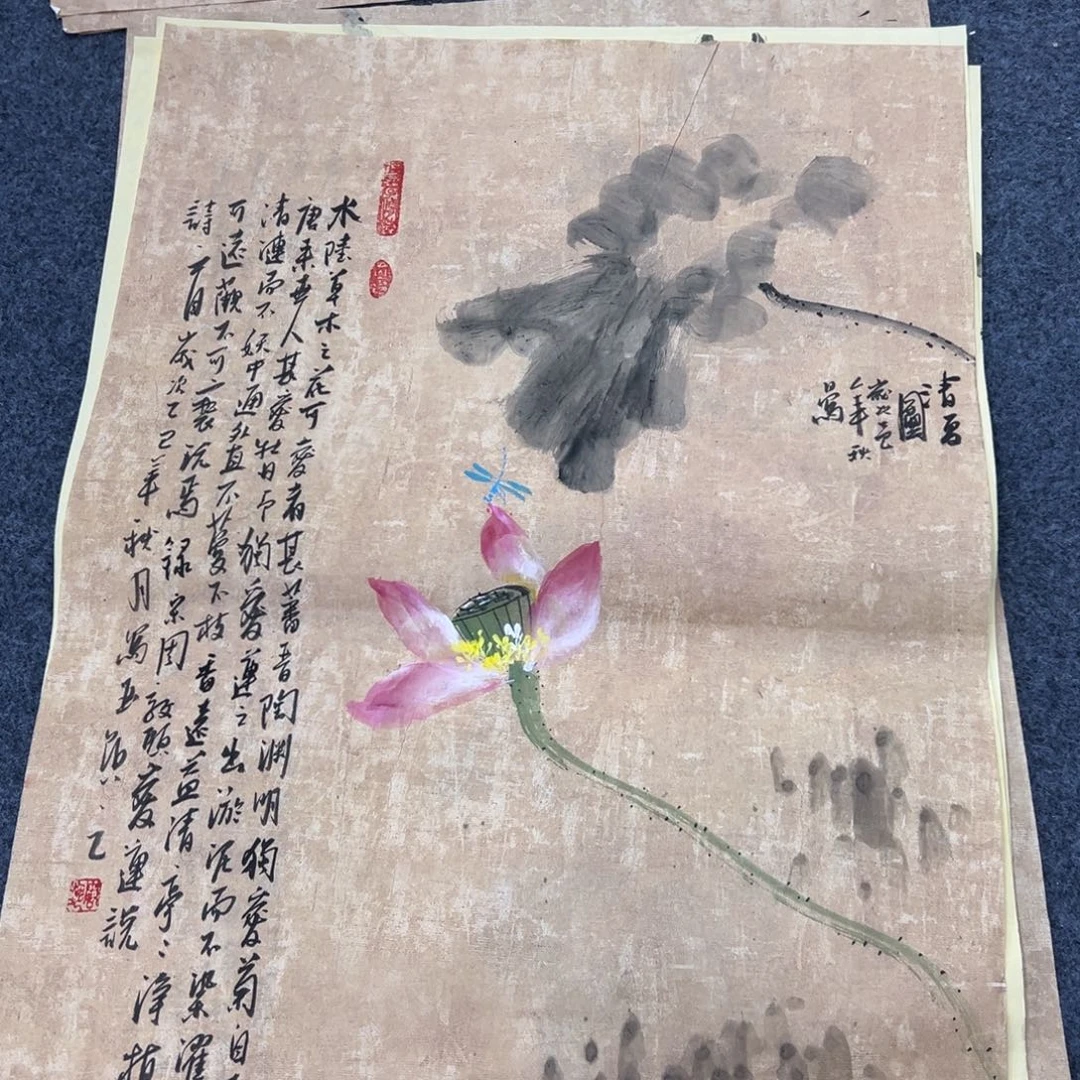 水陸草木之花可愛者甚蕃晋陶渊明獨愛菊自
唐来世人甚愛牡丹予獨愛蓮之出淤泥而不染濯
清漣而不妖中通外直不蔓不枝香遠益清亭亭淨植
可遠觀不可褻玩焉錄宋周敦頤愛蓮説
詩一首歲次乙巳年秋月寫
圖
歲次
年秋
寫